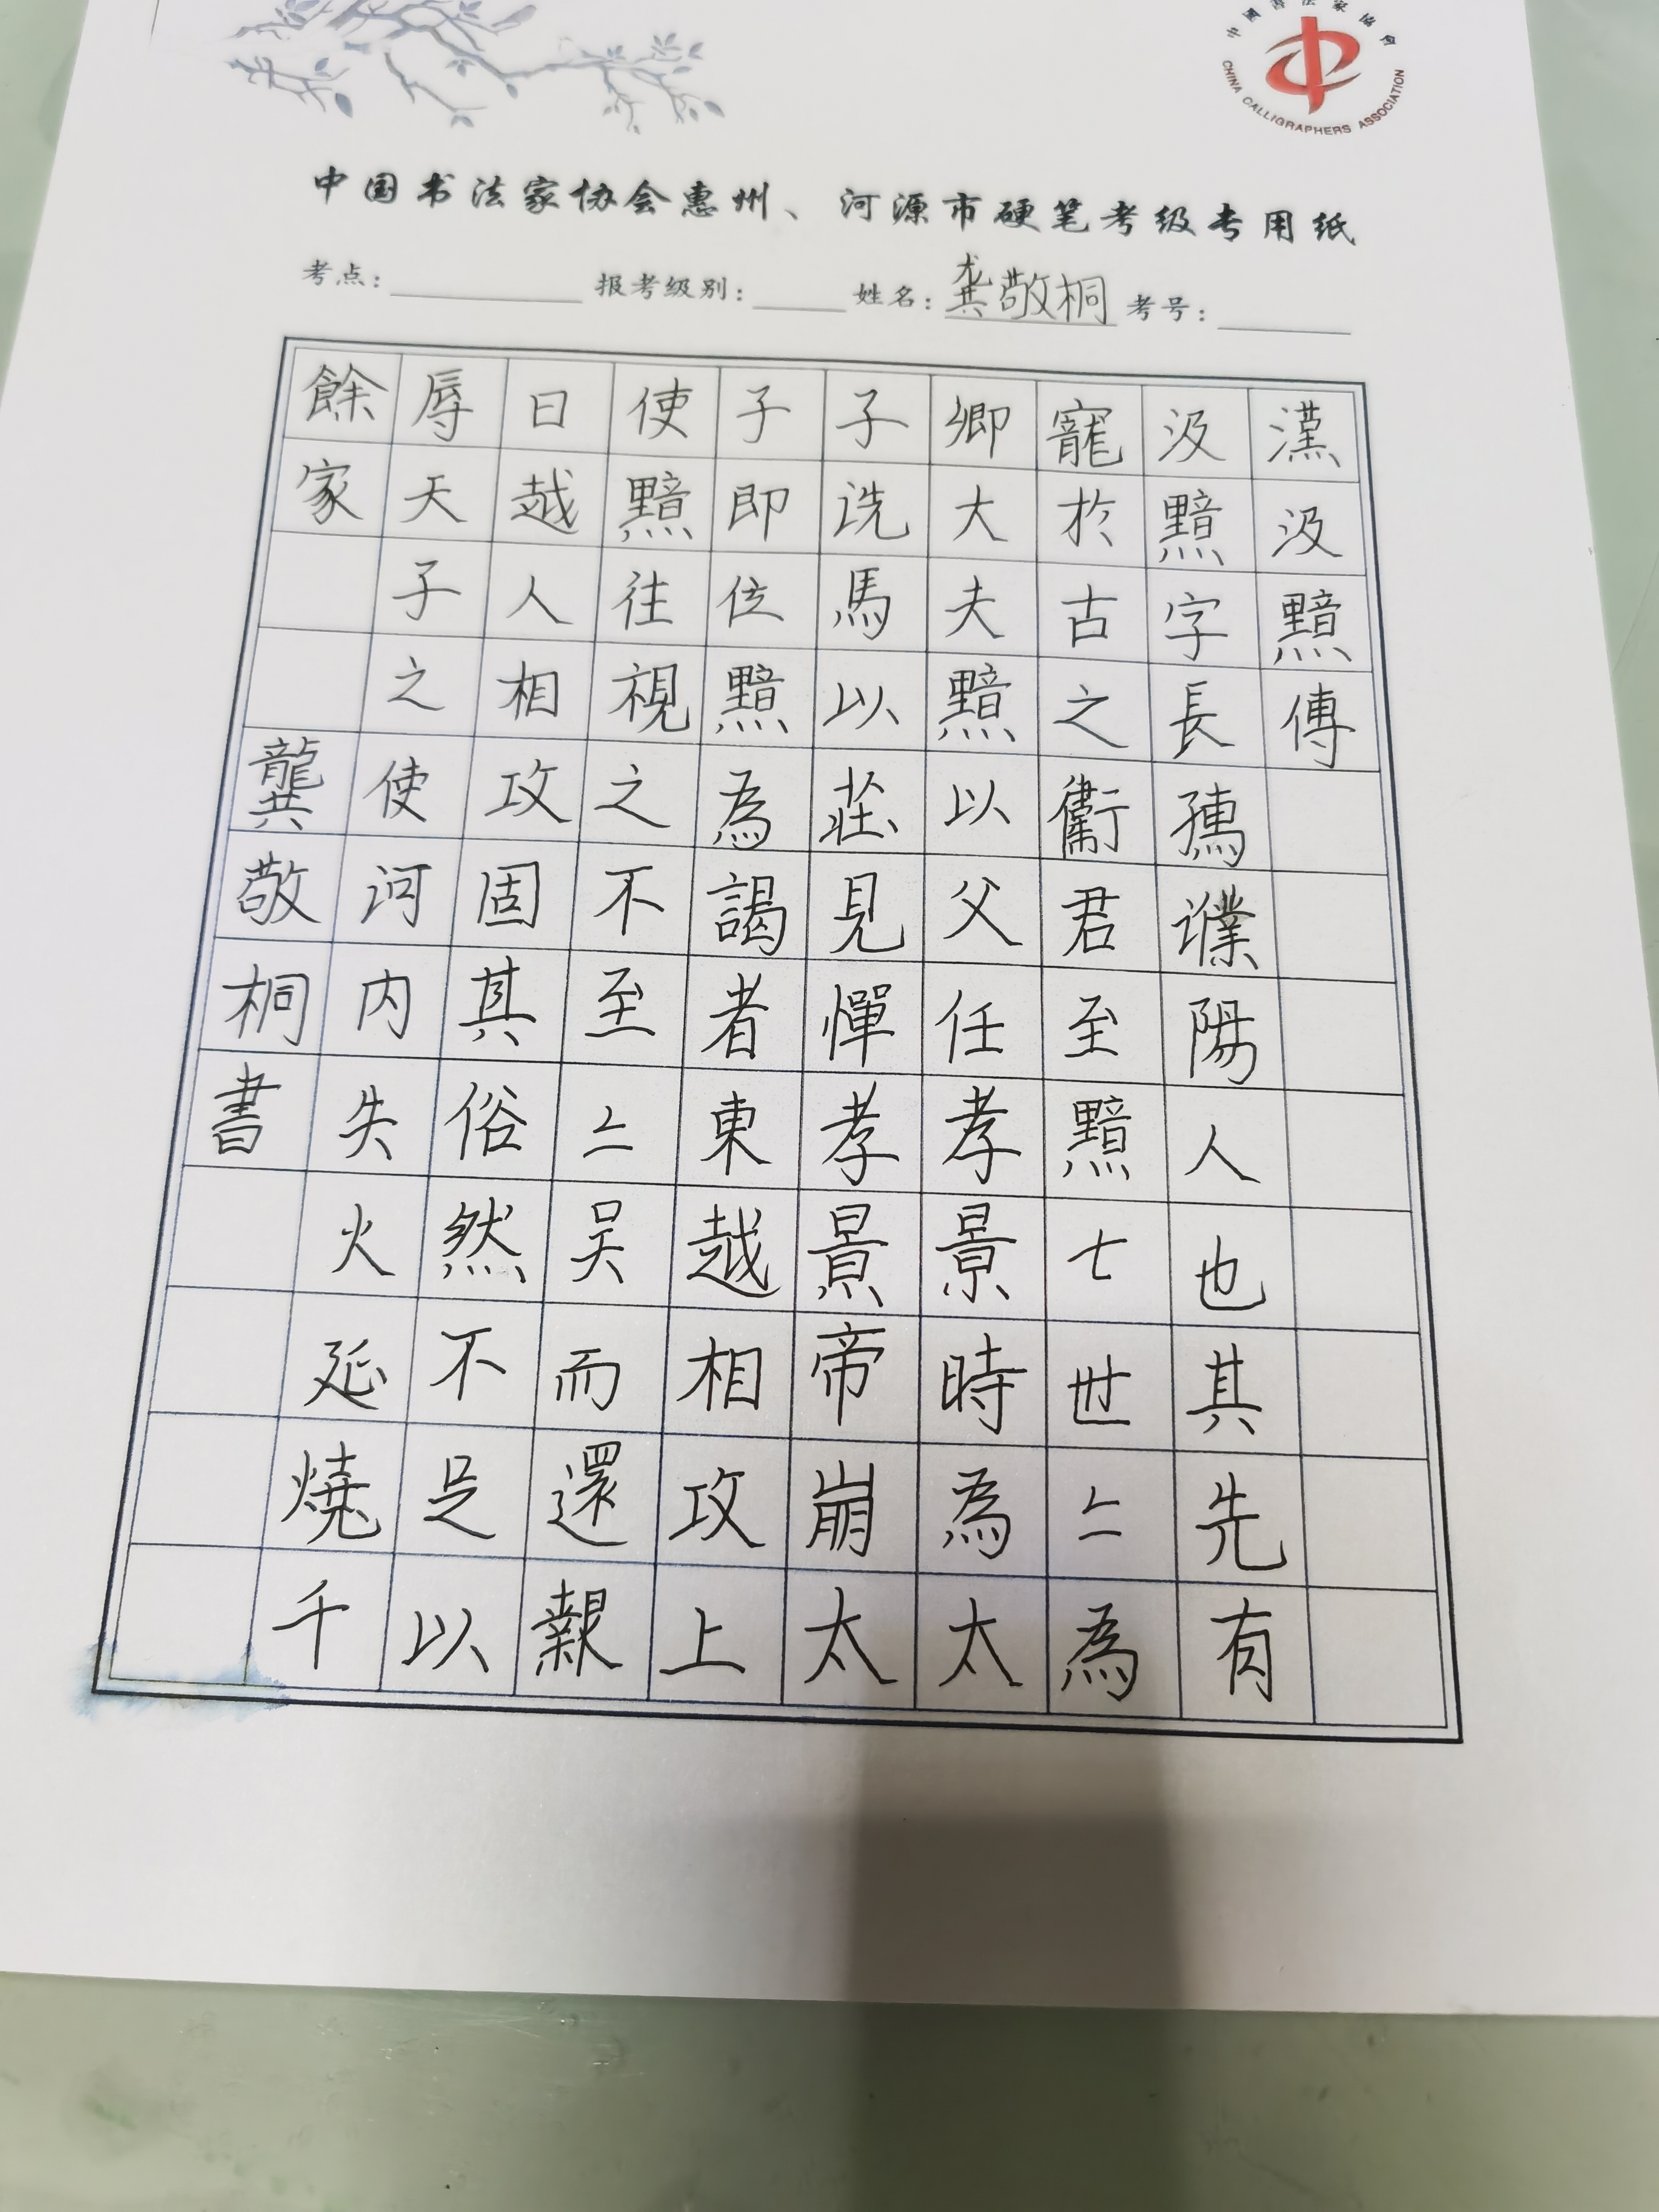 中國書法家協會
CHINA CALLIGRAPHERS ASSOCIATION
中国书法家协会惠州、河源市硬笔考级专用纸
考点： 报考级别： 姓名：龚敬桐 考号：
漢汲黯傳
汲黯字長孺濮陽人也其先有
寵於古之衞君至黯七世二為
卿大夫黯以父任孝景時為太
子洗馬以莊見憚孝景帝崩太
子即位黯為謁者東越相攻上
使黯往視之不至二吴而還報
曰越人相攻固其俗然不足以
辱天子之使河内失火延燒千
餘家
龔敬桐書